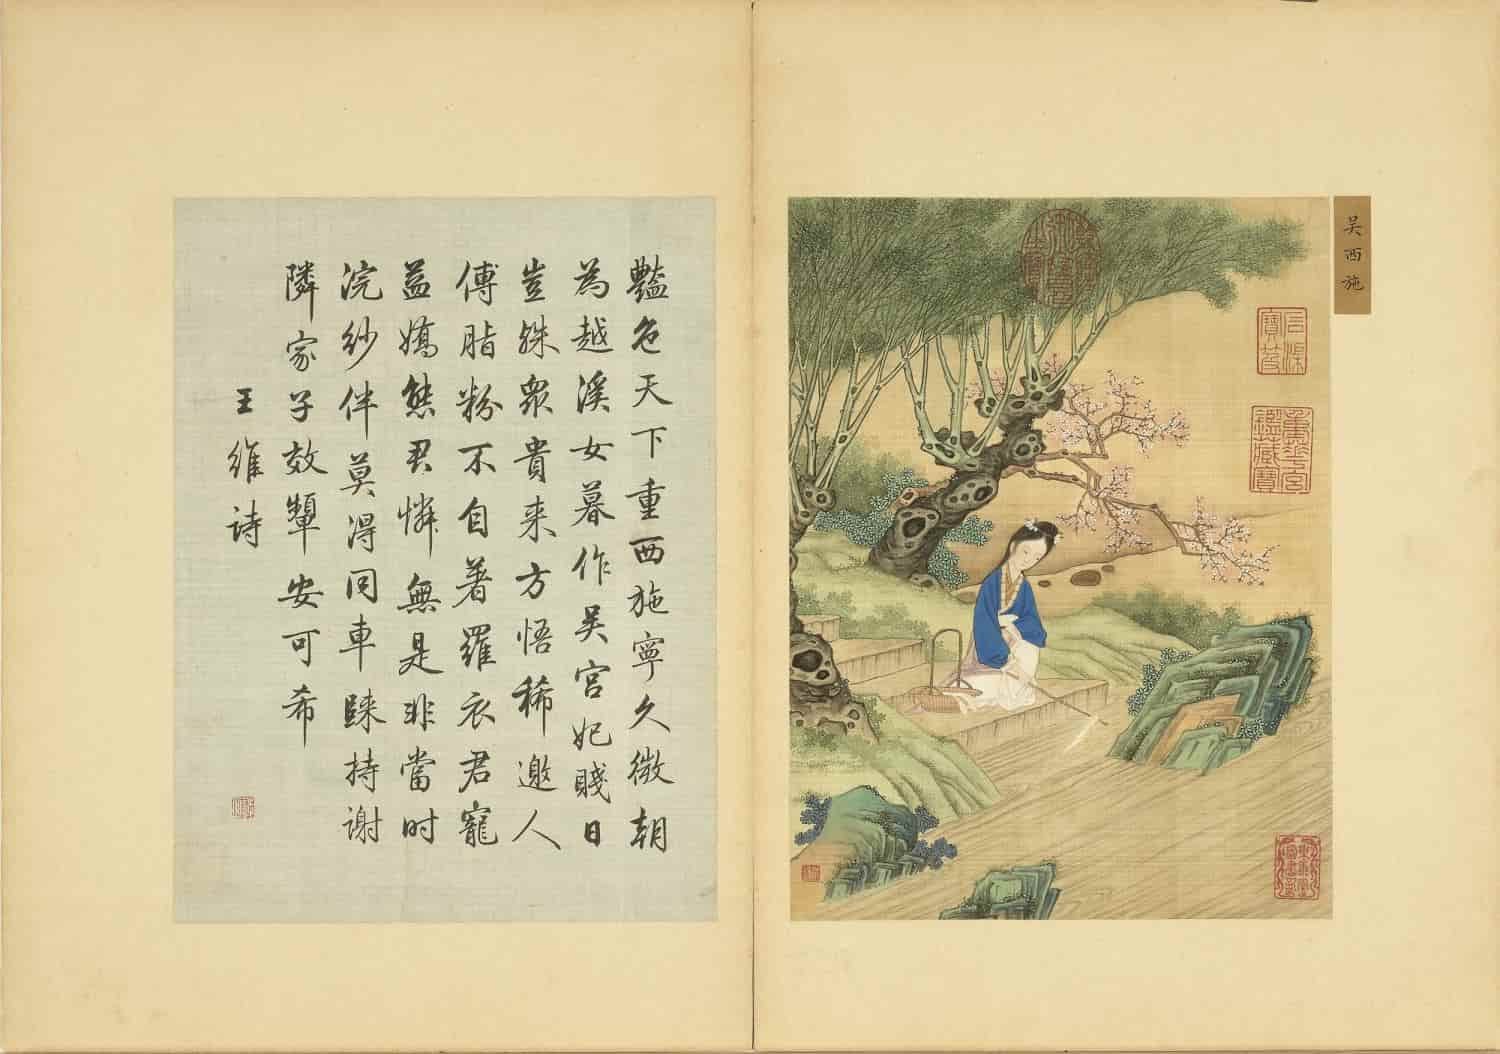 吳西施
石渠寶笈
重華宮鑑藏寶
豔色天下重西施寧久微朝
為越溪女暮作吳宮妃賤日
豈殊衆貴来方悟稀邀人
傅脂粉不自著羅衣君寵
益嬌態君憐無是非當時
浣紗伴莫得同車歸持謝
隣家子效顰安可希
王維詩